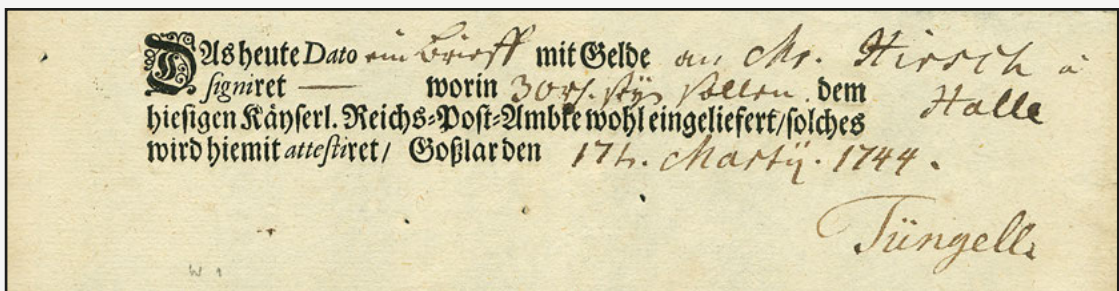 DAs heute Dato ein Brieff mit Gelde an Mr. Hirsch à
signiret — worin 30 rl. seyn sollen. dem Halle
hiesigen Käyserl. Reichs-Post-Ambte wohl eingeliefert/solches
wird hiemit attestiret/ Goßlar den 17t. Martij. 1744.
Tüngell